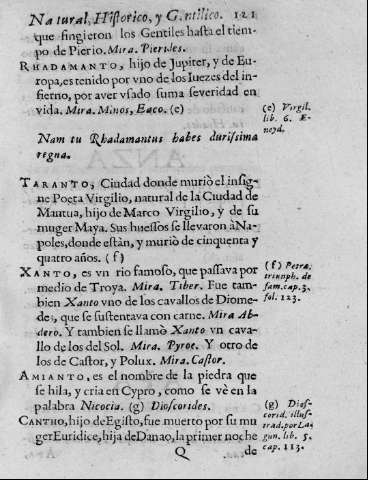 Natural, Historico, y Gentilico. 121
que fingieron los Gentiles hasta el tiem-
po de Pierio. Mira. Pierides.
RHADAMANTO, hijo de Jupiter, y de Eu-
ropa, es tenido por vno de los Iuezes del in-
fierno, por aver vsado suma severidad en
vida. Mira. Minos, Eaco. (e)
(e) Virgil.
lib. 6. Æ-
neyd.
Nam tu Rhadamantus habes durissima
regna.
TARANTO, Ciudad donde muriò el insig-
ne Poeta Virgilio, natural de la Ciudad de
Mantua, hijo de Marco Virgilio, y de su
muger Maya. Sus huessos se llevaron àNa-
poles, donde estàn, y murio de cinquenta y
quatro años. (f)
XANTO, es vn rio famoso, que passava por
medio de Troya. Mira. Tiber. Fue tam-
bien Xanto vno de los cavallos de Diome-
des, que se sustentava con carne. Mira Ab-
dero. Y tambien se llamò Xanto vn cava-
llo de los del Sol. Mira. Pyroe. Y otro de
los de Castor, y Polux. Mira. Castor.
(f) Petra,
triunph. de
fam. cap. 3.
fol. 123.
AMIANTO, es el nombre de la piedra que
se hila, y cria en Cypro, como se vè en la
palabra Nicocia. (g) Dioscorides.
CANTHO, hijo de Egisto, fue muerto por su mu
ger Euridice, hija de Danao, la primer noche
(g) Dios-
corid. illus-
trad. por La-
gun. lib. 5.
cap. 113.
Q de